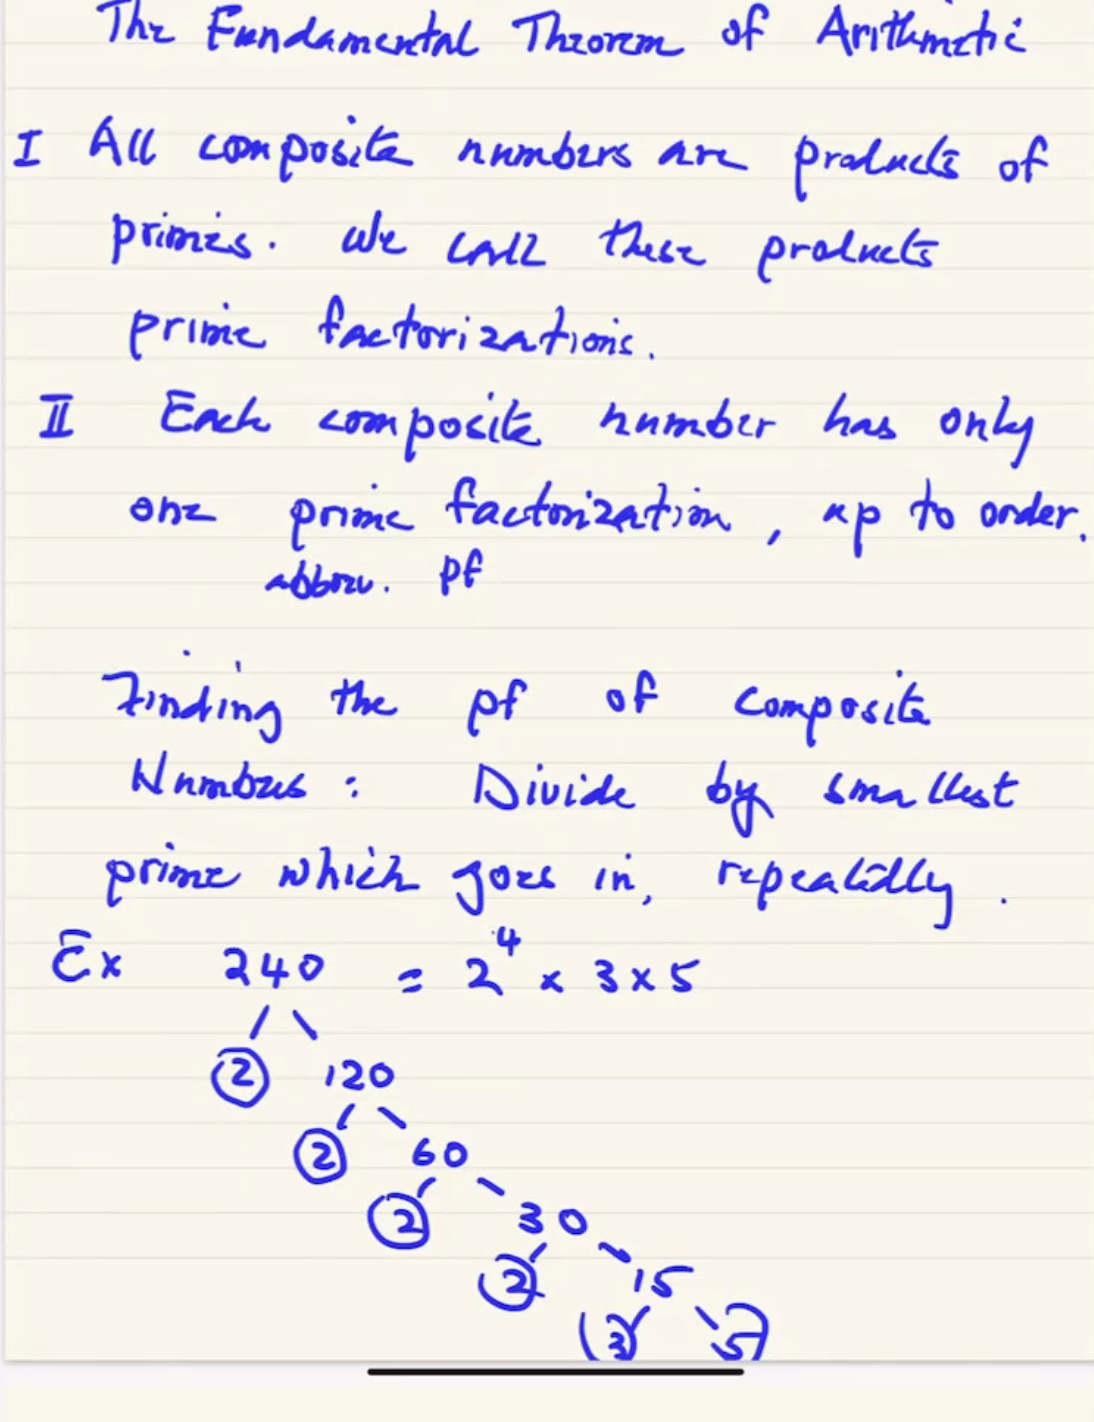 The Fundamental Theorem of Arithmetic
I All composite numbers are products of
primes. We call these products
prime factorizations.
II Each composite number has only
one prime factorization, up to order.
abbrv. pf
Finding the pf of composite
Numbers: Divide by smallest
prime which goes in, repeatedly.
Ex 240 = 2⁴ x 3 x 5
2 120
2 60
2 30
2 15
3 5